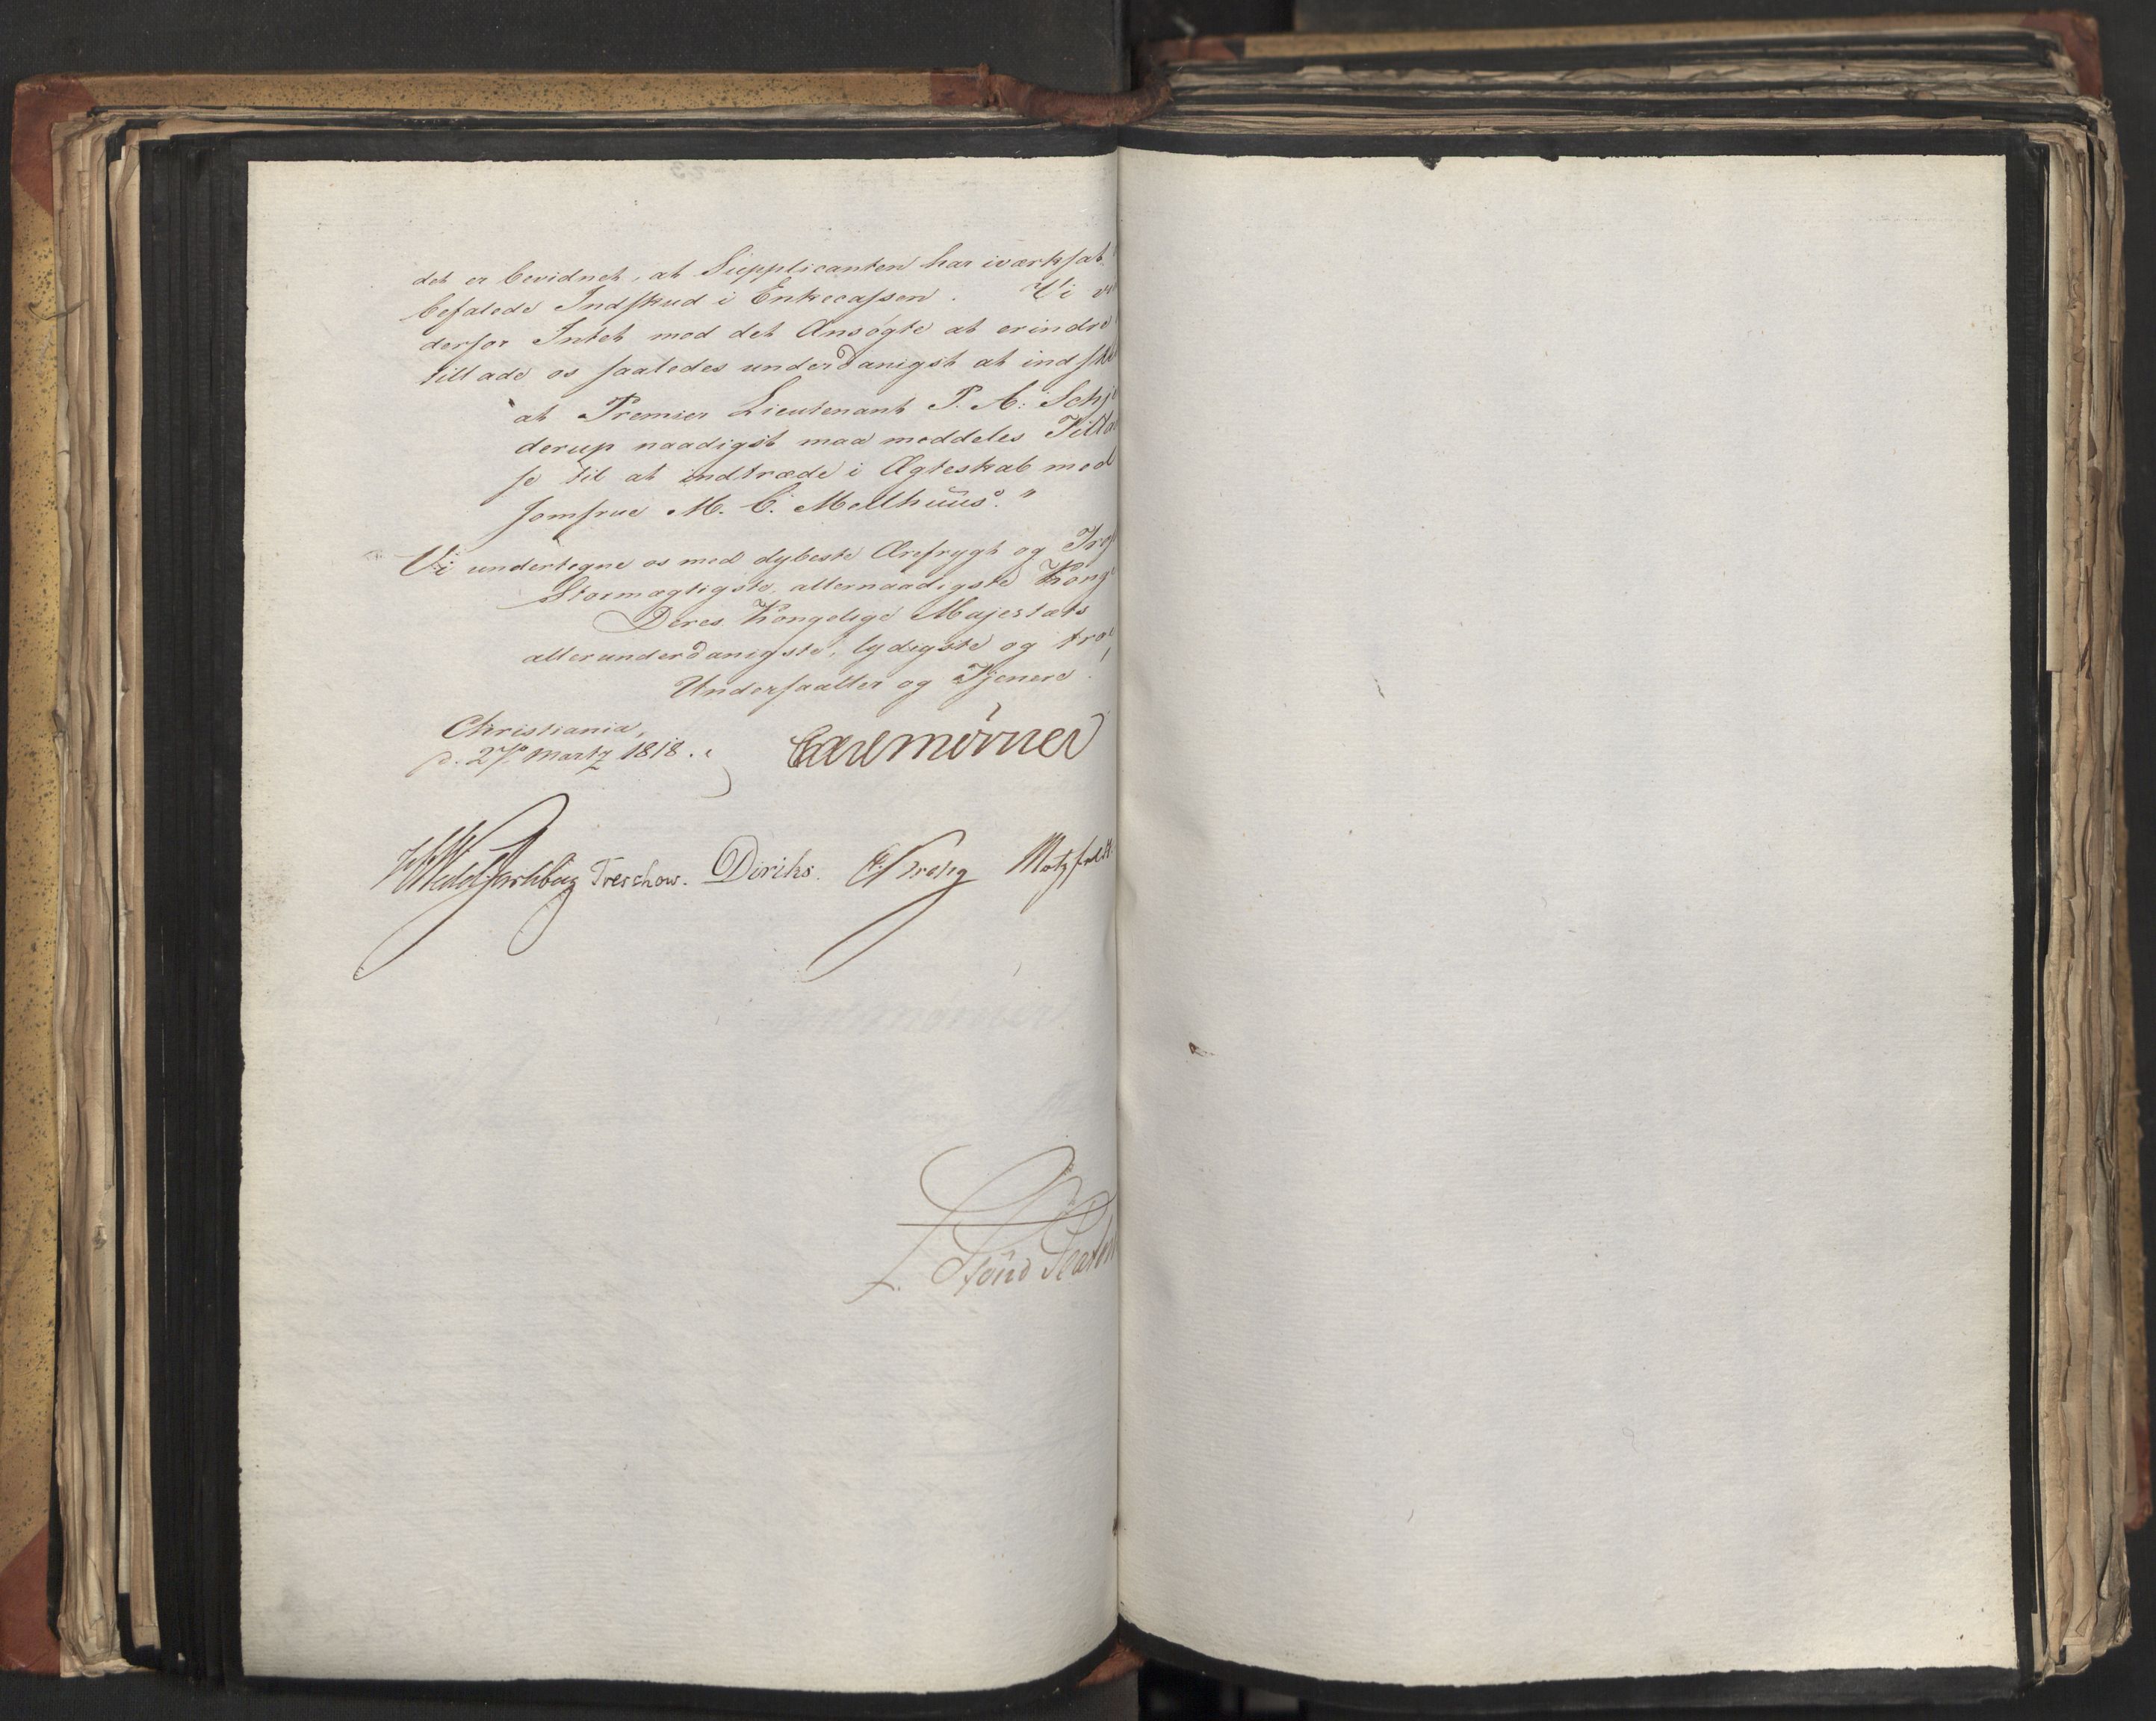 det er bevidnet, at Supplicanten har iværksat
befalede Indskud i Enkecassen. Vi
derfor Intet mod det Ansøgte at erindre
tillade os saaledes underdanigst at indstil
at Premier Lieutenant P. A. Schje
derup naadigst maa meddeles Tillad
se til at indtræde i Ægteskab med
Jomfrue M. C. Mellhuus."
Vi undertegne os med dybeste Ærefrygt og Trosk
Stormægtigste, allernaadigste Konge
Deres Kongelige Majestæts
allerunderdanigste, lydigste og troe
Undersaatter og Tjenere.
Christiania,
d. 27 Martz 1818.
Carl Mörner
HWedel Jarlsberg Treschow. Diriks. Motzfeldt.